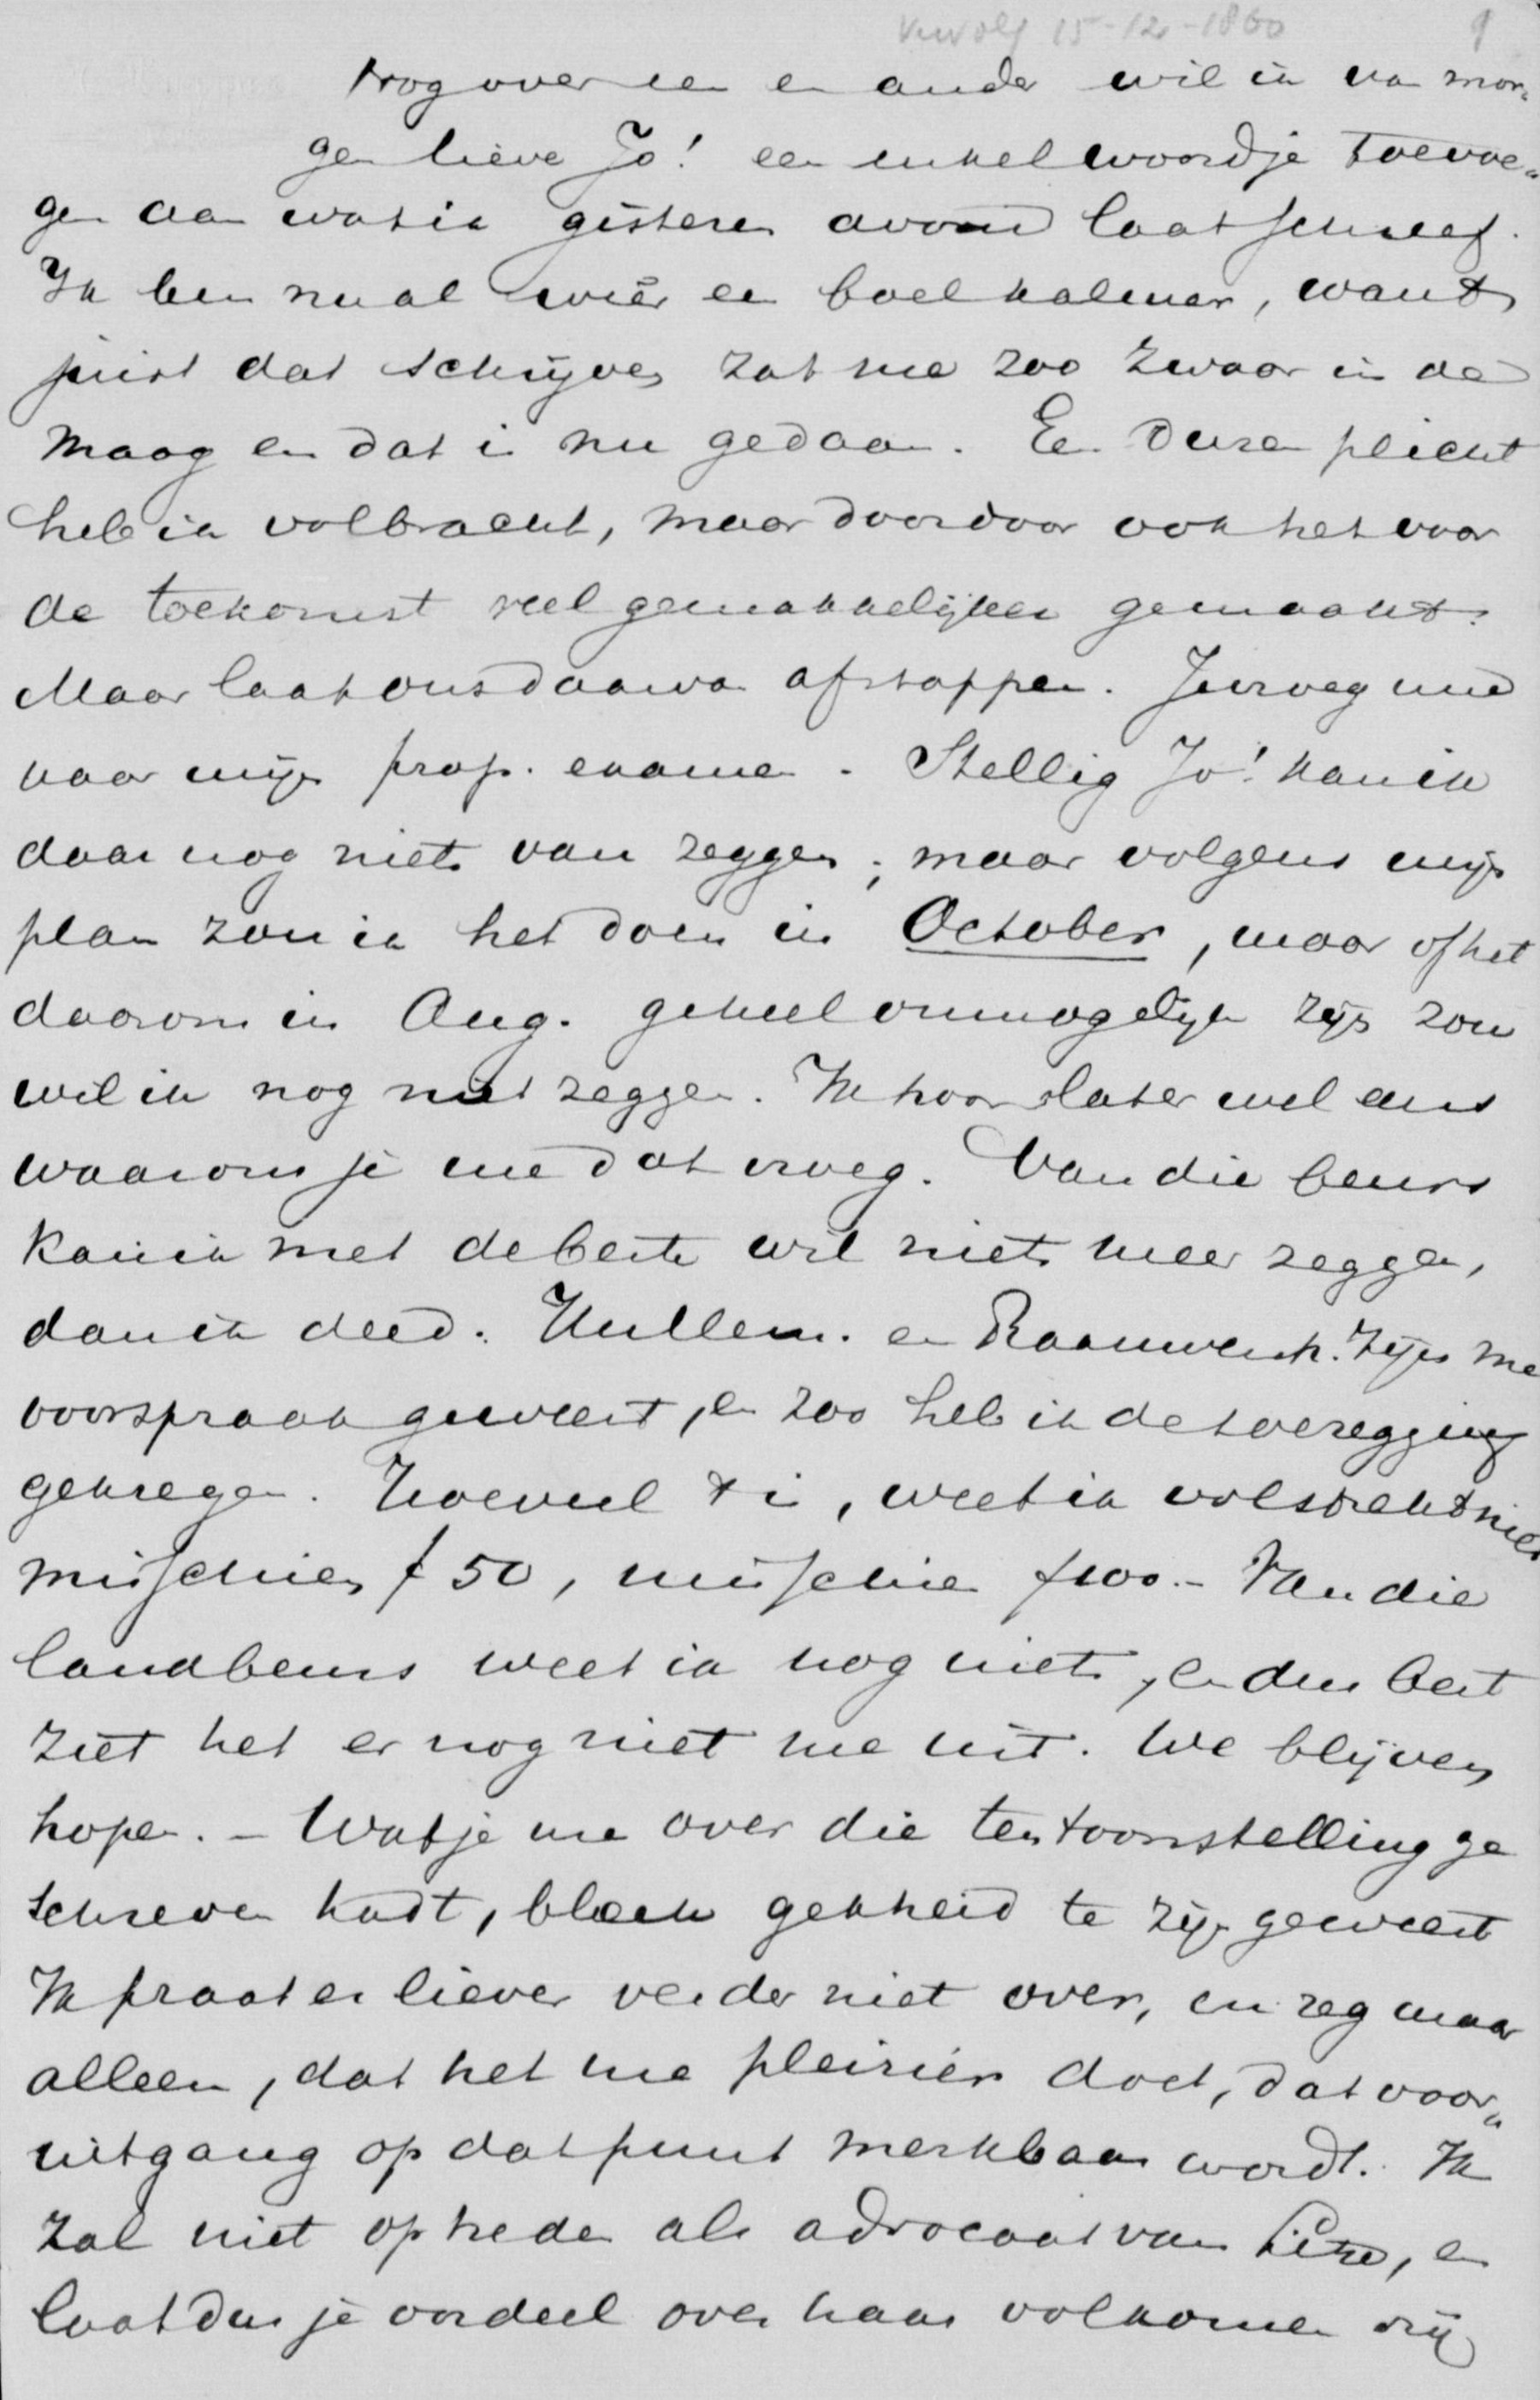 vervolg 15-12-1860 9
Nog over een en ander wil ik van mor„
gen lieve Jo! een enkel woordje toevoe„
gen aan wat ik gisteren avond laat schreef.
Ik ben nu al wiêr een boel kalmer, want
juist dat schrijven zat me zoo zwaar in de
maag en dat is nu gedaan. Een duren plicht
heb ik volbracht, maar daardoor ook het voor
de toekomst veel gemakkelijker gemaakt.
Maar laat ons daarvan afstappen. Je vroeg mij
naar mijn prop. examen. Stellig Jo! kan ik
daar nog niets van zeggen; maar volgens mijn
plan zou ik het doen in October, maar of het
daarom in Aug. geheel onmogelijk zijn zou
wil ik nog niet zeggen. Ik hoor later wel eens
waarom je me dat vroeg. Van die beurs
kan ik met de beste wil niets meer zeggen,
dan ik deed. Kullem. en Raauwenh. zijn me
voorspraak geweest, en zoo heb ik de toezegging
gekregen. Hoeveel 't is, weet ik volstrekt niet
misschien f 50, misschien f 100.- Van die
landbeurs weet ik nog niets, en dus best
ziet het er nog niet me uit. We blijven
hopen. - Wat je me over die tentoonstelling ge
schreven hadt, bleek gekheid te zijn geweest
Ik praat er liever verder niet over, en zeg maar
alleen, dat het me pleizier doet, dat voor„
uitgang op dat punt merkbaar wordt. Ik
zal niet optreden als advocaat van, en
laat dus je oordeel over haar volkomen vrij